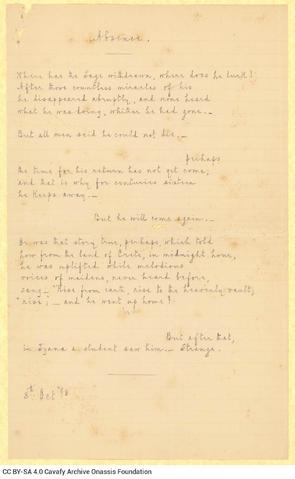 Absence.
Where has the Sage withdrawn, where does he lurk?
After those countless miracles of his
he disappeared abruptly, and none heard
what he was doing, whither he had gone._
But all men said he could not die._
perhaps
the time for his return has not yet come,
and that is why for centuries sixteen
he keeps away._
But he will come again._
Or was that story true, perhaps, which told
how from the land of Crete, in midnight hour,
he was uplifted while melodious
voices of maidens, never heard before,
sang:_ "Rise from earth, rise to the heavenly vault;
"rise;_ and he went up home?
But after that,
in Tyana a student saw him._ Strange.
8th Oct '98
CC BY-SA 4.0 Cavafy Archive Onassis Foundation